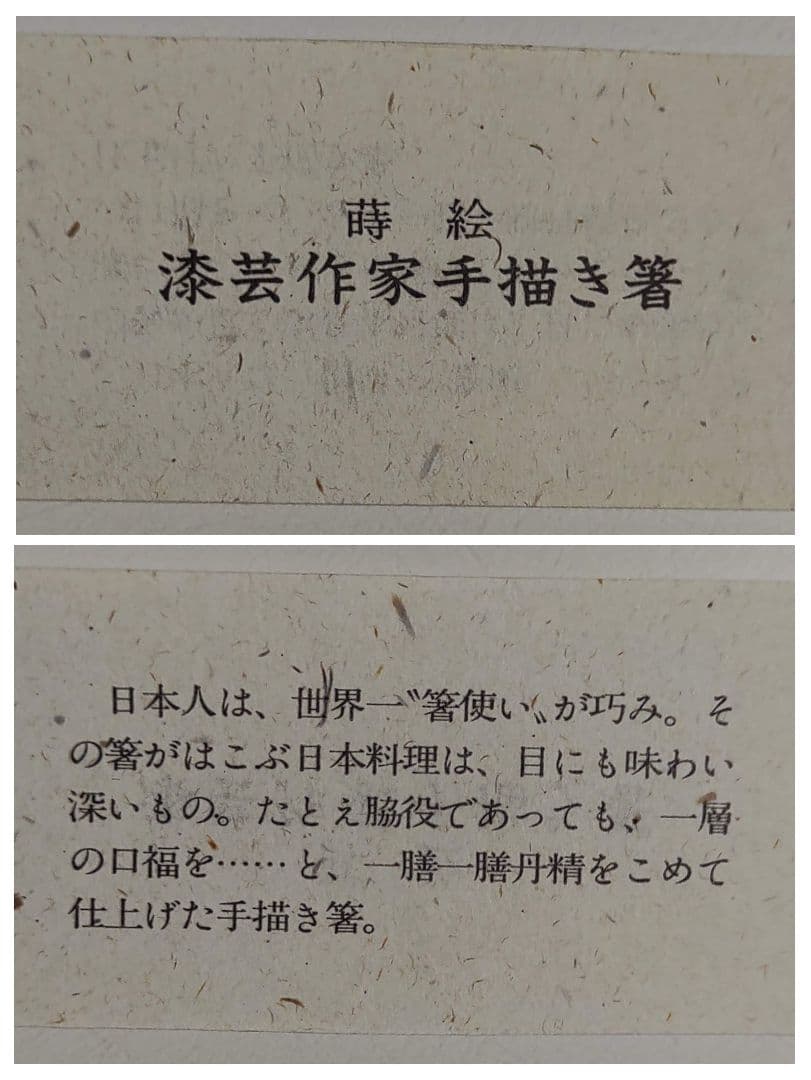 蒔　絵
漆芸作家手描き箸
日本人は、世界一〝箸使い〟が巧み。そ
の箸がはこぶ日本料理は、目にも味わい
深いもの。たとえ脇役であっても、一層
の口福を……と、一膳一膳丹精をこめて
仕上げた手描き箸。